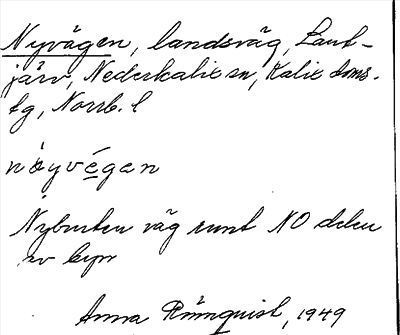 Nyvägen, landsväg, Lant-
järv, Nederkalix sn, Kalix doms.
tg, Norrb. l
nöyvégan
Nybruten väg runt NO delen
av byn
Anna Rönnquist, 1949